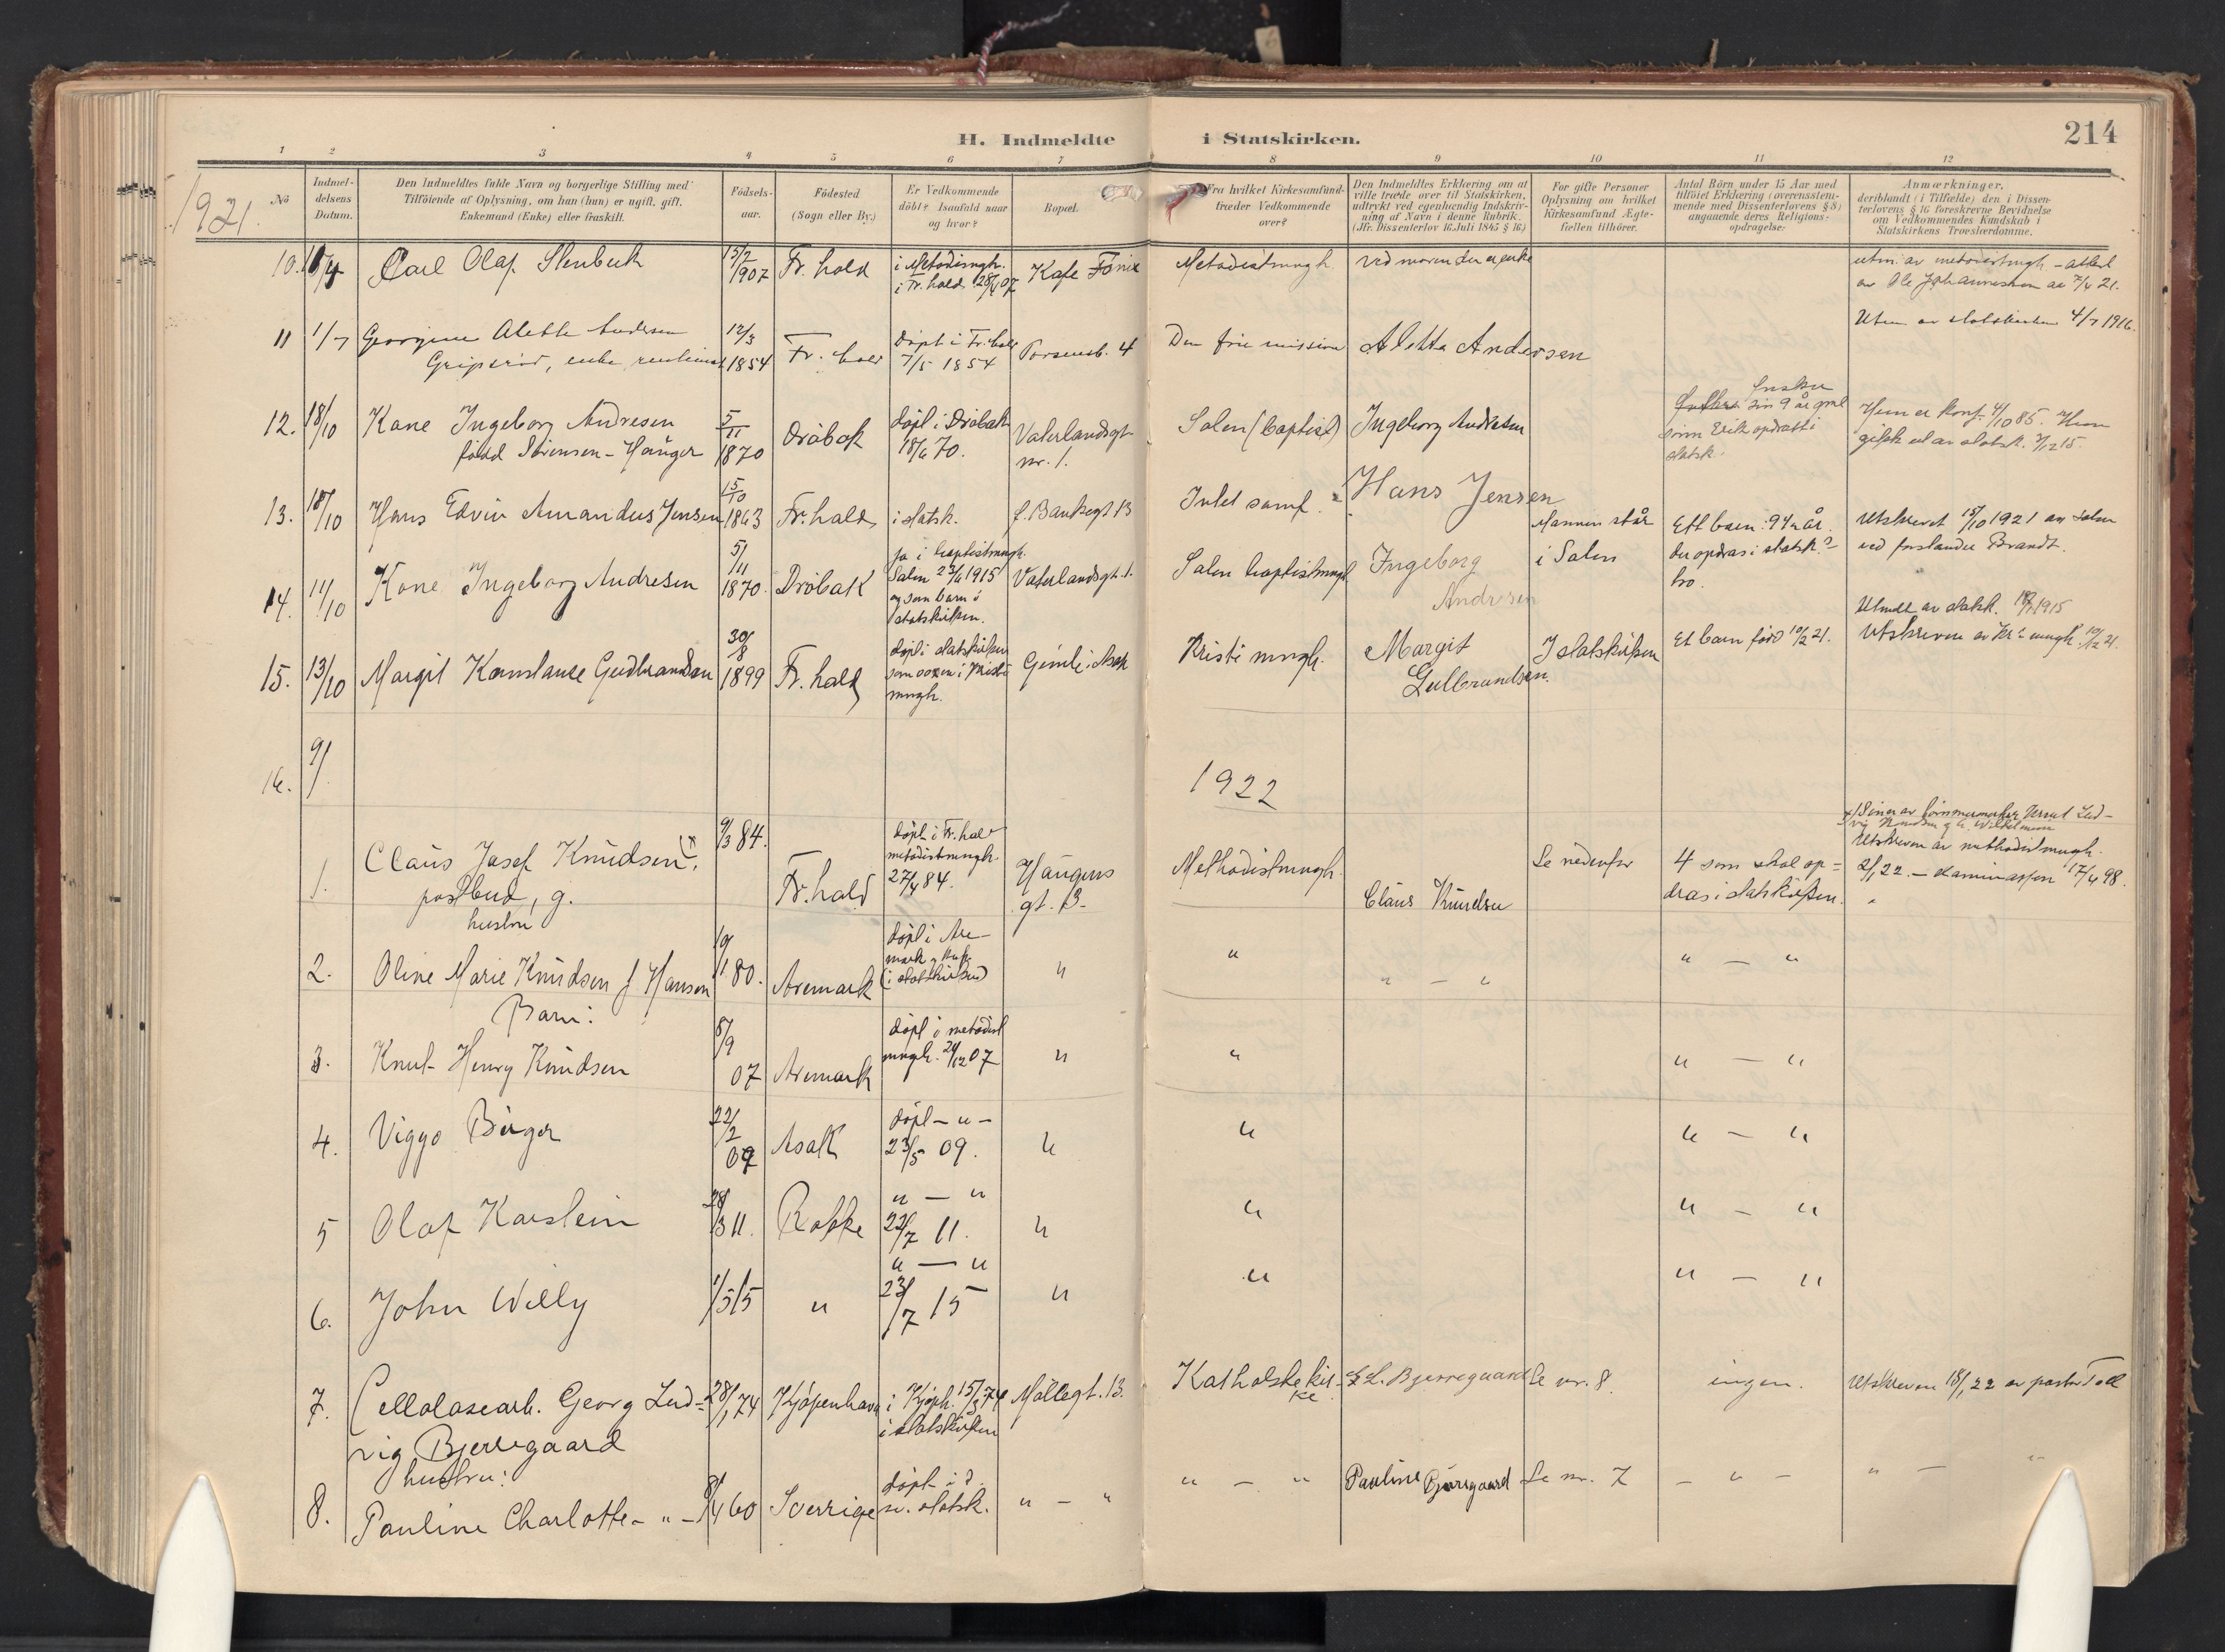 H. Indmeldte i Statskirken.
214
1 2 3 4 5 6 7 8 9 10 11 12
1921.
No
Indmel-
delsens
Datum.
Den Indmeldtes fulde Navn og borgerlige Stilling med
Tilföiende af Oplysning, om han (hun) er ugift, gift,
Enkemand (Enke) eller fraskilt.
Födsels-
aar.
Födested
(Sogn eller By.)
Er Vedkommende
döbt? Isaafald naar
og hvor?
Bopæl.
Fra hvilket Kirkesamfund
træder Vedkommende
over?
Den Indmeldtes Erklæring om at
ville træde over til Statskirken,
udtrykt ved egenhændig Indskriv-
ning af Navn i denne Rubrik.
(Jfr. Dissenterlov 16. Juli 1845 § 16.)
For gifte Personer
Oplysning om hvilket
Kirkesamfund Ægte-
fællen tilhörer.
Antal Börn under 15 Aar med
tilföiet Erklæring (overensstem-
mende med Dissenterlovens § 8)
angaaende deres Religions-
opdragelse.
Anmærkninger.
deriblandt (i Tilfælde) den i Dissen-
terlovens § 16 foreskrevne Bevidnelse
om Vedkommendes Kundskab i
Statskirkens Troeslærdomme.
10. Carl Olaf Stenbeck
15/2
1907
Fr. hald
i Metodismgh.
i Fr. hald 28/4 07
Kafe Fönix
Metodistmngh.
ved moren der er enke
utm. av metodistmgh. - attest
av Ole Johannessen av 7/4 21.
11 1/7 Georgine Alette Andersen
Gripsröd, enke,
12/3
1854
Fr. hald
döpt i Fr. hald
7/5 1854
Torsensb. 4
Den frie mission
Aletta Andersen
Utm. av statskirken 4/7 1916.
12. 18/10 Kone Ingeborg Andresen
född Sörensen - Hånger
5/11
1870
Dröbak
döpt i Dröbak
18/6 70.
Vaterlandsgt.
nr. 1.
Salem (baptist)
Ingeborg Andresen
önsker
sin 9 år gml
sönn Erik opdratt i
statsk.
Hun er konf. 4/10 85. Hun
gikk ut av statsk. 7/12 15.
13. 18/10 Hans Edvin Amandus Jensen
15/10
1863
Fr. hald
i statsk.
f. Bankegt. 13
Intet samf.
Hans Jensen
14. 11/10 Kone Ingeborg Andresen
5/11
1870.
Dröbak
ja i baptistmngh.
Salem 23/6 1915
og som barn i
statskirken.
Vaterlandsgt. 1.
Salem baptistmngh
Ingeborg
Andresen
Mannen står
i Salem
Ett barn: 9 4/12 år.
der opdras i statsk.s
tro.
Utskrevet 15/10 1921 av Salem
ved forstander Brandt.
Utmeldt av statsk. 1915
15. 13/10 Margit Konstanse Gudbrandsen
30/8
1899
Fr. hald
döpt i statskirken
som voxen i Kristi
mngh.
Gimle i Asak
Kristi mngh.
Margit
Gulbrandsen.
I statskirken
Et barn född 10/2 21.
Utskreven av Kr. mngh. 10/12 21.
16. 9/
1922
1. Claus Josef Knudsen x)
postbud, g.
9/3 84.
Fr. hald
döpt i Fr. hald
metodistmngh.
27/4 84.
Haugens
gt. 13.
Methodistmngh.
Claus Knudsen
Se nedenfor
4 som skal op-
dras i statskirken.
Utskreven av methodistmngh.
2/1 22. - 17/4 98.
hustru
2. Oline Marie Knudsen f. Hansen
19/1 80.
Aremark
döpt i Are-
mark
(i statskirken)
" " " - " " - "
Barn:
3. Knut Henry Knudsen
8/9
07
Aremark
döpt i metodist
mngh. 26/12 07
" " " - "
4. Viggo Birger
22/2
09
Asak
döpt - " -
23/5 09.
" " " - "
5 Olaf Karstein
28/3 11.
Rokke
" - "
22/7 11.
" " " - "
6. John Willy
1/5 15
"
" - "
23/7 15
" " " - "
7. Cellolosearb. Georg Lud-
vig Bjerregaard
28/1 74
Kjöpenhavn
i Kjöph. 15/3 74
i statskirken
Möllegt. 13.
Katholske kir-
ke.
G. L. Bjerregaard
Se nr. 8.
ingen.
Utskreven 18/1 22 av pastor
hustru:
8. Pauline Charlotte - " -
8/4 60
Sverrige
döpt i d.
sv. statsk.
" - " " - "
Pauline Bjerregaard
Se nr. 7
- " - " - "